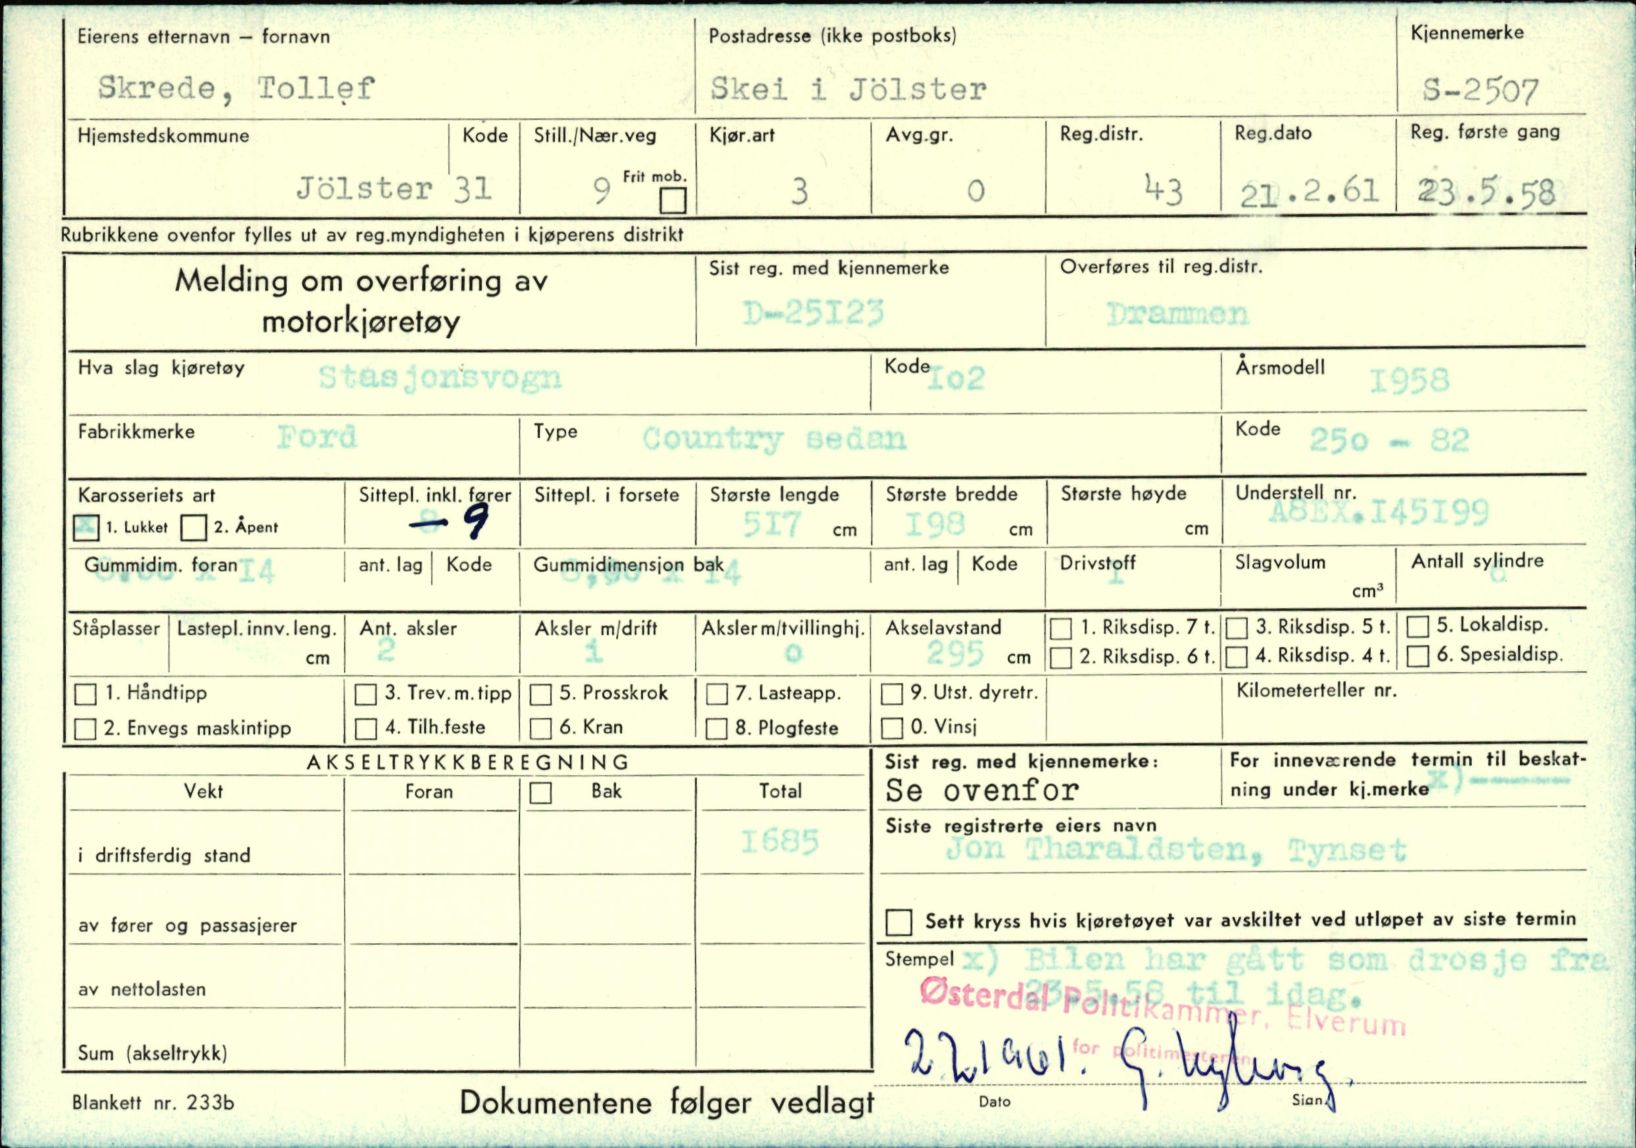 Eierens etternavn – fornavn
Postadresse (ikke postboks)
Kjennemerke
Skrede, Tollef
Skei i Jölster
S-2507
Hjemstedskommune
Kode
Still./Nær.veg
Kjør.art
Avg.gr.
Reg.distr.
Reg.dato
Reg. første gang
Jölster 31
9
Frit mob.
3
0
43
21.2.61
23.5.58
Rubrikkene ovenfor fylles ut av reg.myndigheten i kjøperens distrikt
Melding om overføring av
motorkjøretøy
Sist reg. med kjennemerke
D-25I23
Overføres til reg.distr.
Drammen
Hva slag kjøretøy
Stasjonsvogn
Kode
Io2
Årsmodell
I958
Fabrikkmerke
Ford
Type
Country sedan
Kode
25o - 82
Karosseriets art
Sittepl. inkl. fører
Sittepl. i forsete
Største lengde
Største bredde
Største høyde
Understell nr.
x 1. Lukket
2. Åpent
8 – 9
5I7 cm
I98 cm
cm
A8EX.I45I99
Gummidim. foran
8,00 x I4
ant. lag
Kode
Gummidimensjon bak
8,00 x I4
ant. lag
Kode
Drivstoff
I
Slagvolum
cm³
Antall sylindre
Ståplasser
Lastepl. innv. leng.
cm
Ant. aksler
2
Aksler m/drift
1
Aksler m/tvillinghj.
o
Akselavstand
295 cm
1. Riksdisp. 7 t.
3. Riksdisp. 5 t.
5. Lokaldisp.
2. Riksdisp. 6 t.
4. Riksdisp. 4 t.
6. Spesialdisp.
1. Håndtipp
3. Trev. m. tipp
5. Prosskrok
7. Lasteapp.
9. Utst. dyretr.
Kilometerteller nr.
2. Envegs maskintipp
4. Tilh.feste
6. Kran
8. Plogfeste
0. Vinsj
AKSELTRYKKBEREGNING
Sist reg. med kjennemerke:
Se ovenfor
For inneværende termin til beskat-
ning under kj.merke x)-------
Vekt
Foran
Bak
Total
i driftsferdig stand
I685
Siste registrerte eiers navn
Jon Tharaldsten, Tynset
av fører og passasjerer
Sett kryss hvis kjøretøyet var avskiltet ved utløpet av siste termin
av nettolasten
Stempel
x) Bilen har gått som drosje fra
23.5.58 til idag.
Østerdal Politikammer, Elverum
for politimesteren
Sum (akseltrykk)
Dato
Sign.
Blankett nr. 233b
Dokumentene følger vedlagt